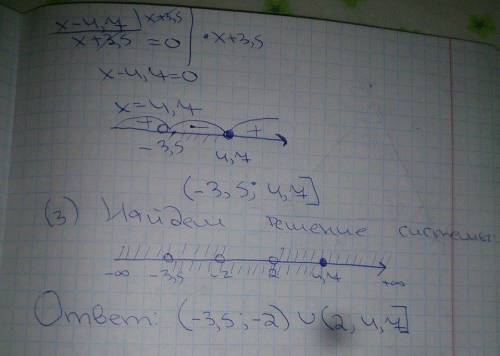 x-4,7 | x+3,5
x+3,5 = 0 | · x+3,5
x-4,7=0
x=4,7
+ - +
-3,5 4,7
(-3,5; 4,7]
(3) Найдем решение системы:
-∞ -3,5 -2 2 4,7 +∞
Ответ: (-3,5; -2) ∪ (2, 4,7]